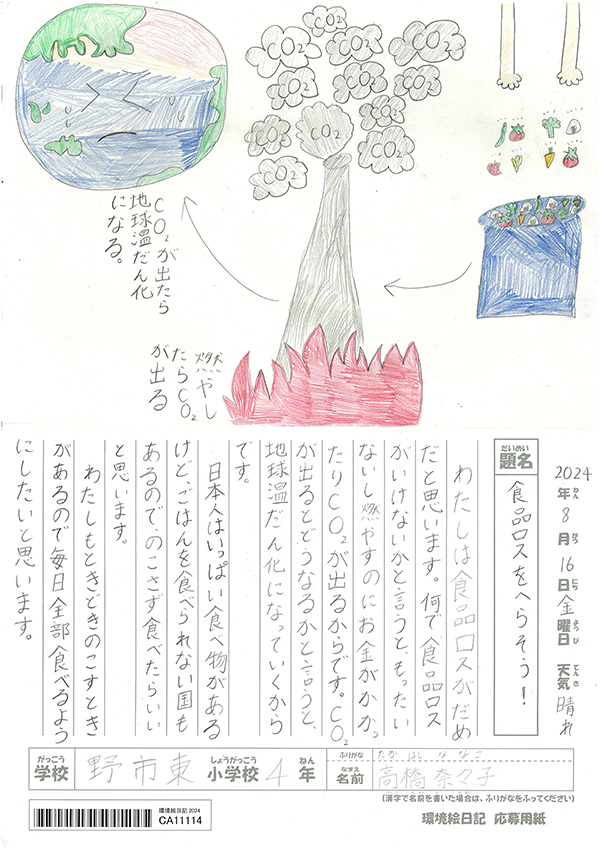 CO₂
CO₂
CO₂
CO₂
CO₂
CO₂
CO₂
CO₂
CO₂
CO₂
CO₂
CO₂
CO₂が出たら
地球温だん化
になる。
燃やし
たらCO₂
が出る
2024年8月16日金曜日 天気 晴れ
ねん がつ にち ようび てんき
だいめい
題名
食品ロスをへらそう!
わたしは食品ロスがだめ
だと思います。何で食品ロス
がいけないかと言うと、もったい
ないし燃やすのにお金がかかっ
たりCO₂が出るからです。CO₂
が出るとどうなるかと言うと、
地球温だん化になっていくから
です。
日本人はいっぱい食べ物がある
けど、ごはんを食べられない国も
あるので、のこさず食べたらいい
と思います。
わたしもときどきのこすとき
があるので毎日全部食べるよう
にしたいと思います。
がっこう しょうがっこう ねん
学校 野市東 小学校 4年
ふりがな たかはし ななこ
なまえ
名前 高橋 奈々子
(漢字で名前を書いた場合は、ふりがなをふってください)
環境絵日記 2024
CA11114
環境絵日記 応募用紙